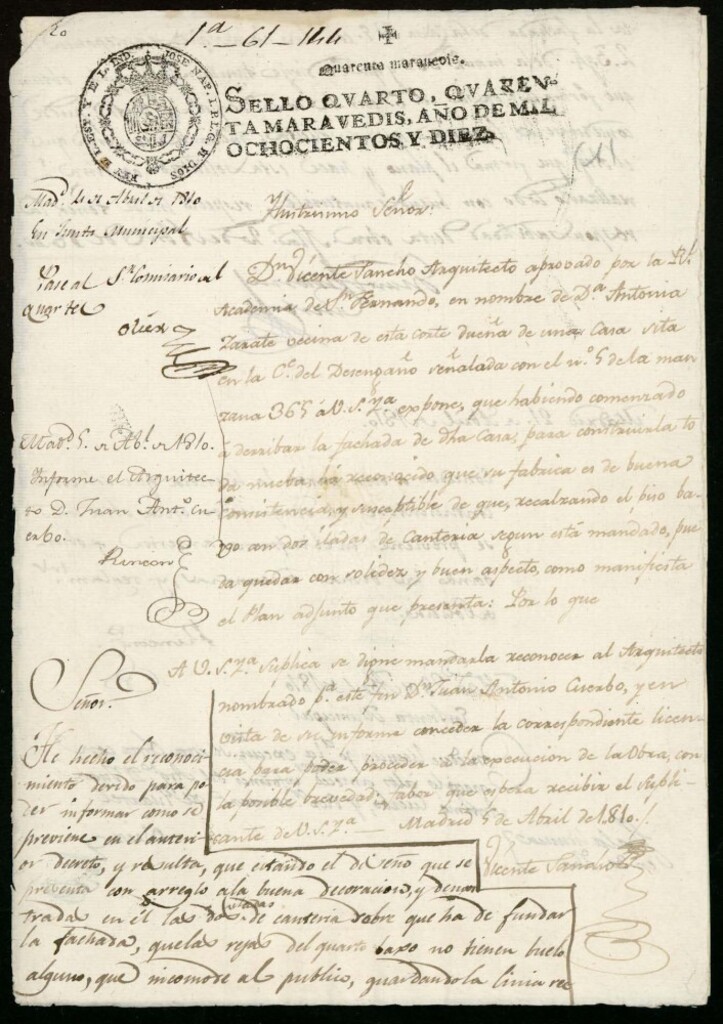 20
1ª_61_144
Quarenta maravedis.
SELLO QVARTO, QVAREN-
TA MARAVEDIS, AÑO DE MIL
OCHOCIENTOS Y DIEZ.
JOSE NAP. I. P. L. G. D. DIOS REY D. L. ESP. Y E L. IND.
Mad.d 4 de Abril de 1810
En Junta Municipal
Pase al S.r Comisario del
Quartel
Ilustrisimo Señor.
Dn Vicente Sancho Arquitecto aprovado por la Rl
Academia de Sn Fernando, en nombre de Dª Antonia
Zarate vecina de esta corte dueña de una Casa sita
en la Ce. del Desengaño señalada con el nº. 5 de la man
zana 365 á V.S.Yª expone, que habiendo comenzado
á derribar la fachada de dha Casa, para construirla to
da nueba, ha reconocido que su fabrica es de buena
consistencia, y susceptible de que, recalzando el piso ba
xo con dos iladas de Canteria segun está mandado, pue
da quedar con solidez y buen aspecto, como manifiesta
el Plan adjunto que presenta: Por lo que
Mad.d 5 de Abl. de 1810.
Informe el Arquitec
to D. Juan Ant.o Cu
erbo.
Rincon
A V.S.Yª Suplica se digne mandarla reconocer al Arquitecto
nombrado pª este fin Dn. Juan Antonio Cuerbo, y en
vista de su informe conceder la correspondiente licen
cia para poder proceder a la execucion de la Obra, con
la posible brevedad; fabor que espera recibir el Supli
cante de V.S.Yª _ Madrid 5 de Abril de 1810.
Vicente Sancho
Señor.
He hecho el reconoci
miento devido para po
der informar como se
previene en el anteri
or decreto, y resulta, que estando el diseño que se
presenta con arreglo a la buena decoracion, y demos
trada en él las dos iladas de canteria sobre que ha de fundar
la fachada, que las rejas del quarto baxo no tienen buelo
alguno, que incomode al publico, guardando la linia rec